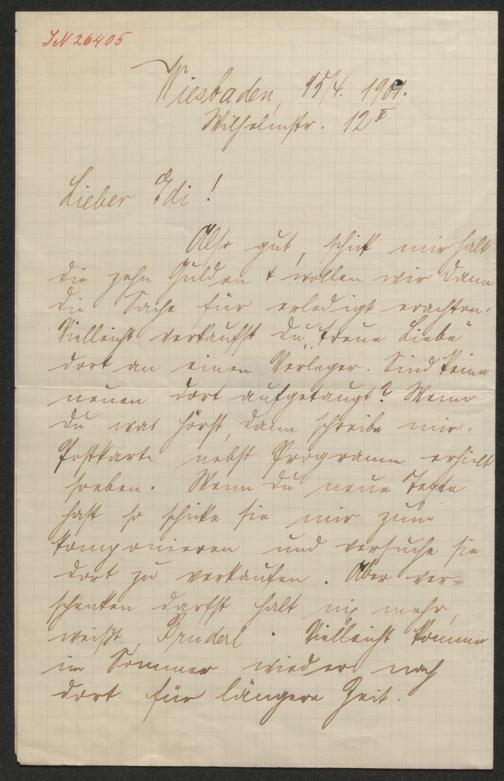 IN 26405
Wiesbaden, 15/4. 1901.
Wilhelmstr. 12 II
Lieber Edi!
Also gut, schick mir halt
die zehn Gulden & wollen wir dann
die Sache für erledigt erachten.
Vielleicht verkaufst du „Treue Liebe"
dort an einen Verleger. Sind keine
neuen dort aufgetaugt? Wenn
du was hörst, dann schreibe mir.
Postkarte nebst Programm erhielt
soeben. Wenn du neue Texte
hast so schicke sie mir zum
komponieren und versuche sie
dort zu verkaufen. Aber ver=
schenken darfst halt nix mehr,
weißt, Bruderl. Vielleicht komme
im Sommer wieder nach
dort für längere Zeit.